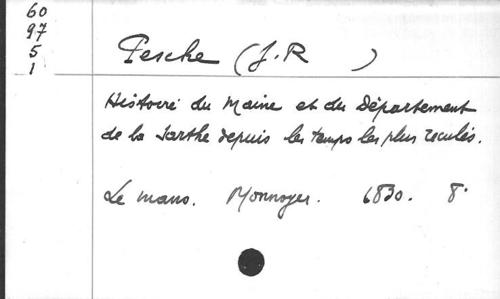 60
97
5
1
Pesche (J. R )
Histoire du Maine et du Département
de la Sarthe depuis les temps les plus reculés.
Le mans. Monnoyer. 1830. 8°